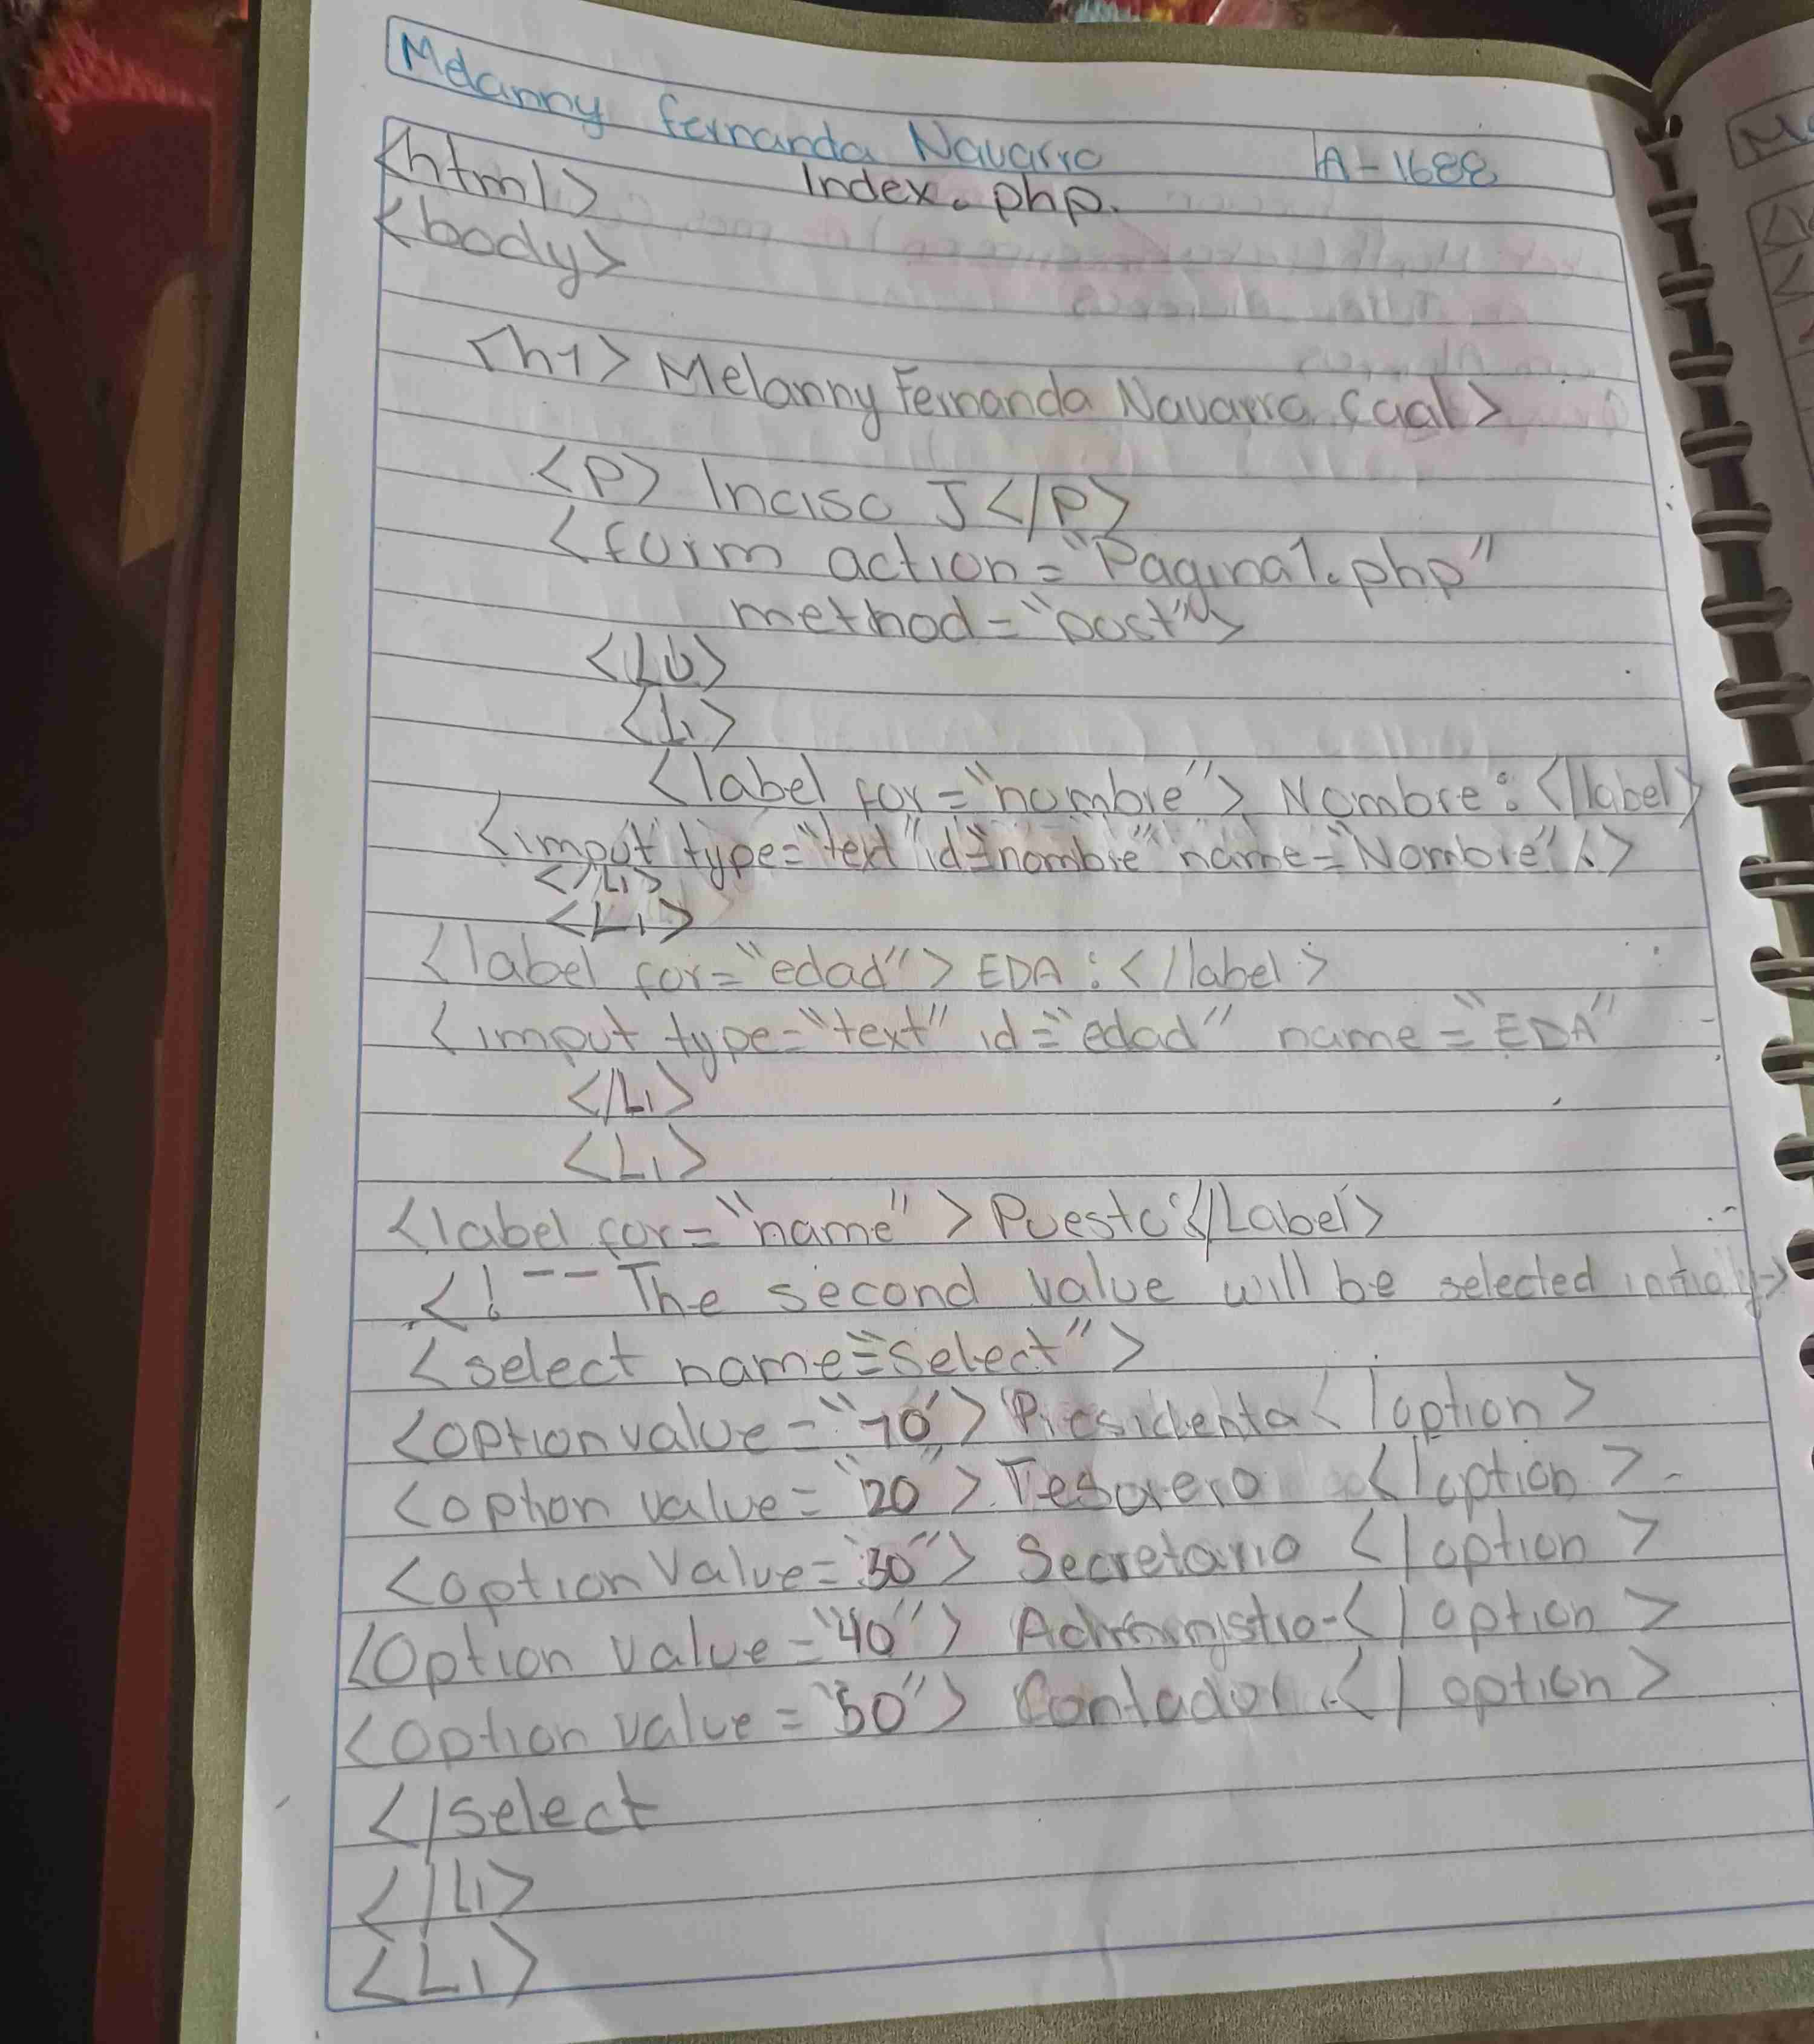 Melanny Fernanda Navarro A-1688
<html> Index.php.
<body>
<h1> Melanny Fernanda Navarro Caal>
<P> Inciso J</P>
<form action="Pagina1.php"
method="post">
<LU>
<Li>
<label for="nombre"> Nombre:</label>
<imput type="text" id="nombre" name="Nombre"/>
</Li>
<Li>
<label for="edad"> EDA:</label>
<imput type="text" id="edad" name="EDA"
</Li>
<Li>
<label for="name"> Puesto:</Label>
<!-- The second value will be selected initially->
<select name="select">
<option value="10"> Presidenta</option>
<option value="20"> Tesorero </option>
<option Value="30"> Secretario </option>
<Option value="40"> Administro-</option>
<option value="50"> Contador </option>
</select
</Li>
<Li>